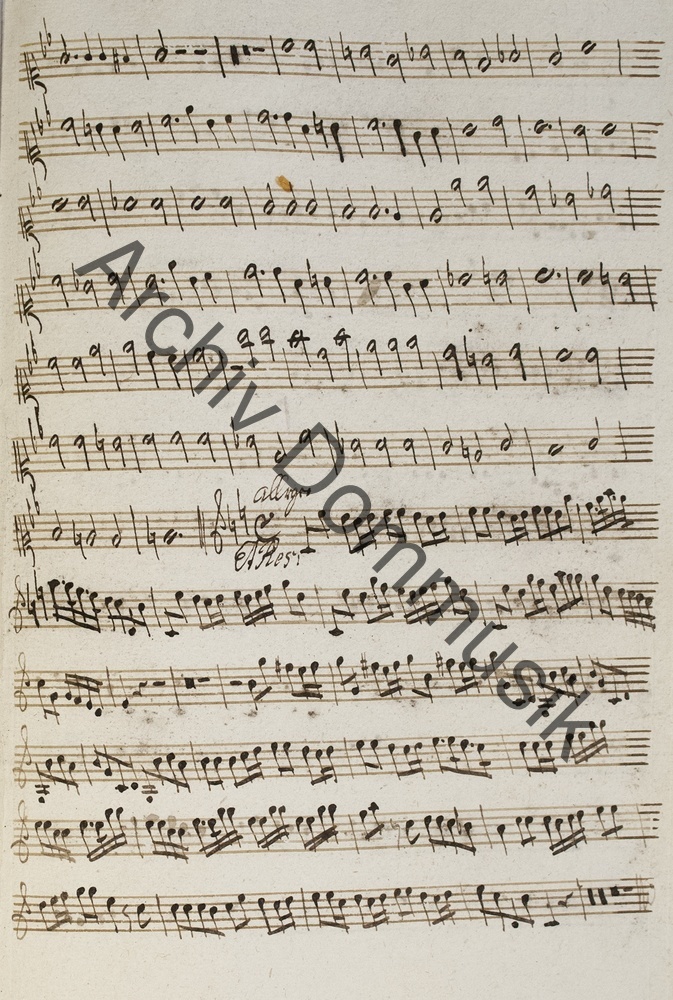 Allegro
Et Resr:
Archiv Dommusik